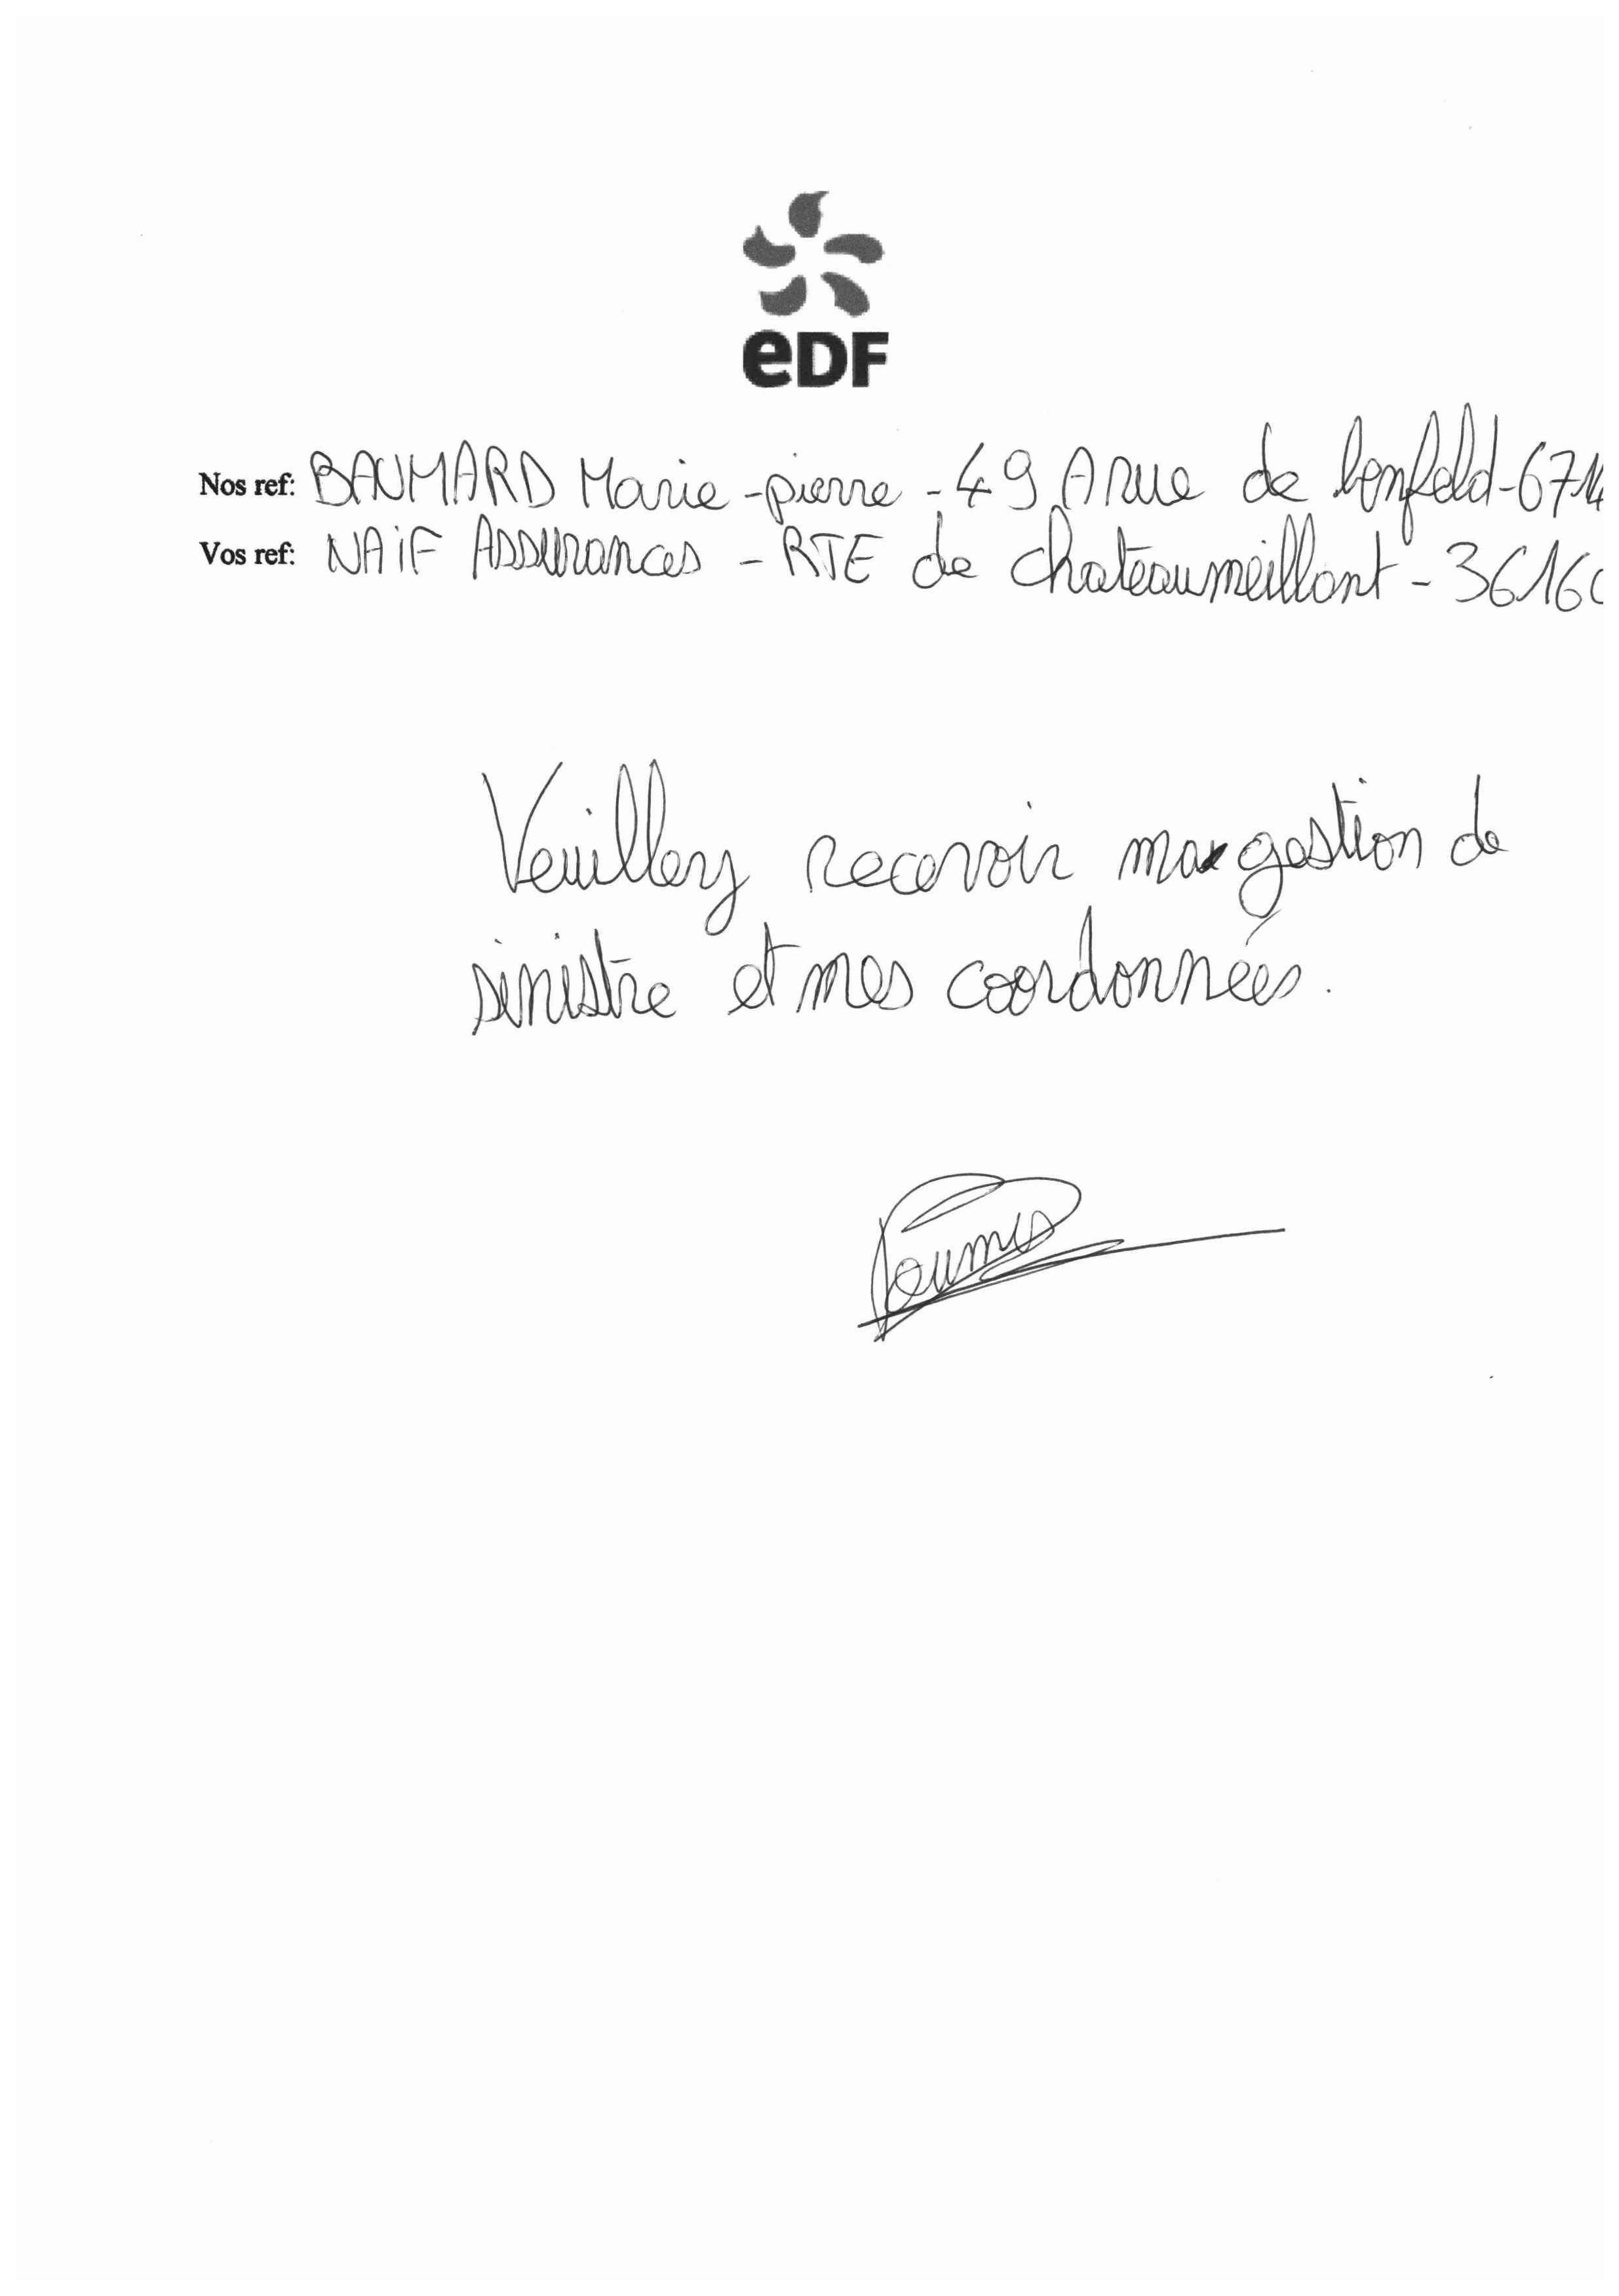 eDF
Nos ref: BAUMARD Marie-pierre - 49 A rue de benfeld - 6714
Vos ref: NAiF Assurances - RTE de chateaumeillant - 36160
Veuillez recevoir ma gestion de
sinistre et mes coordonnées.